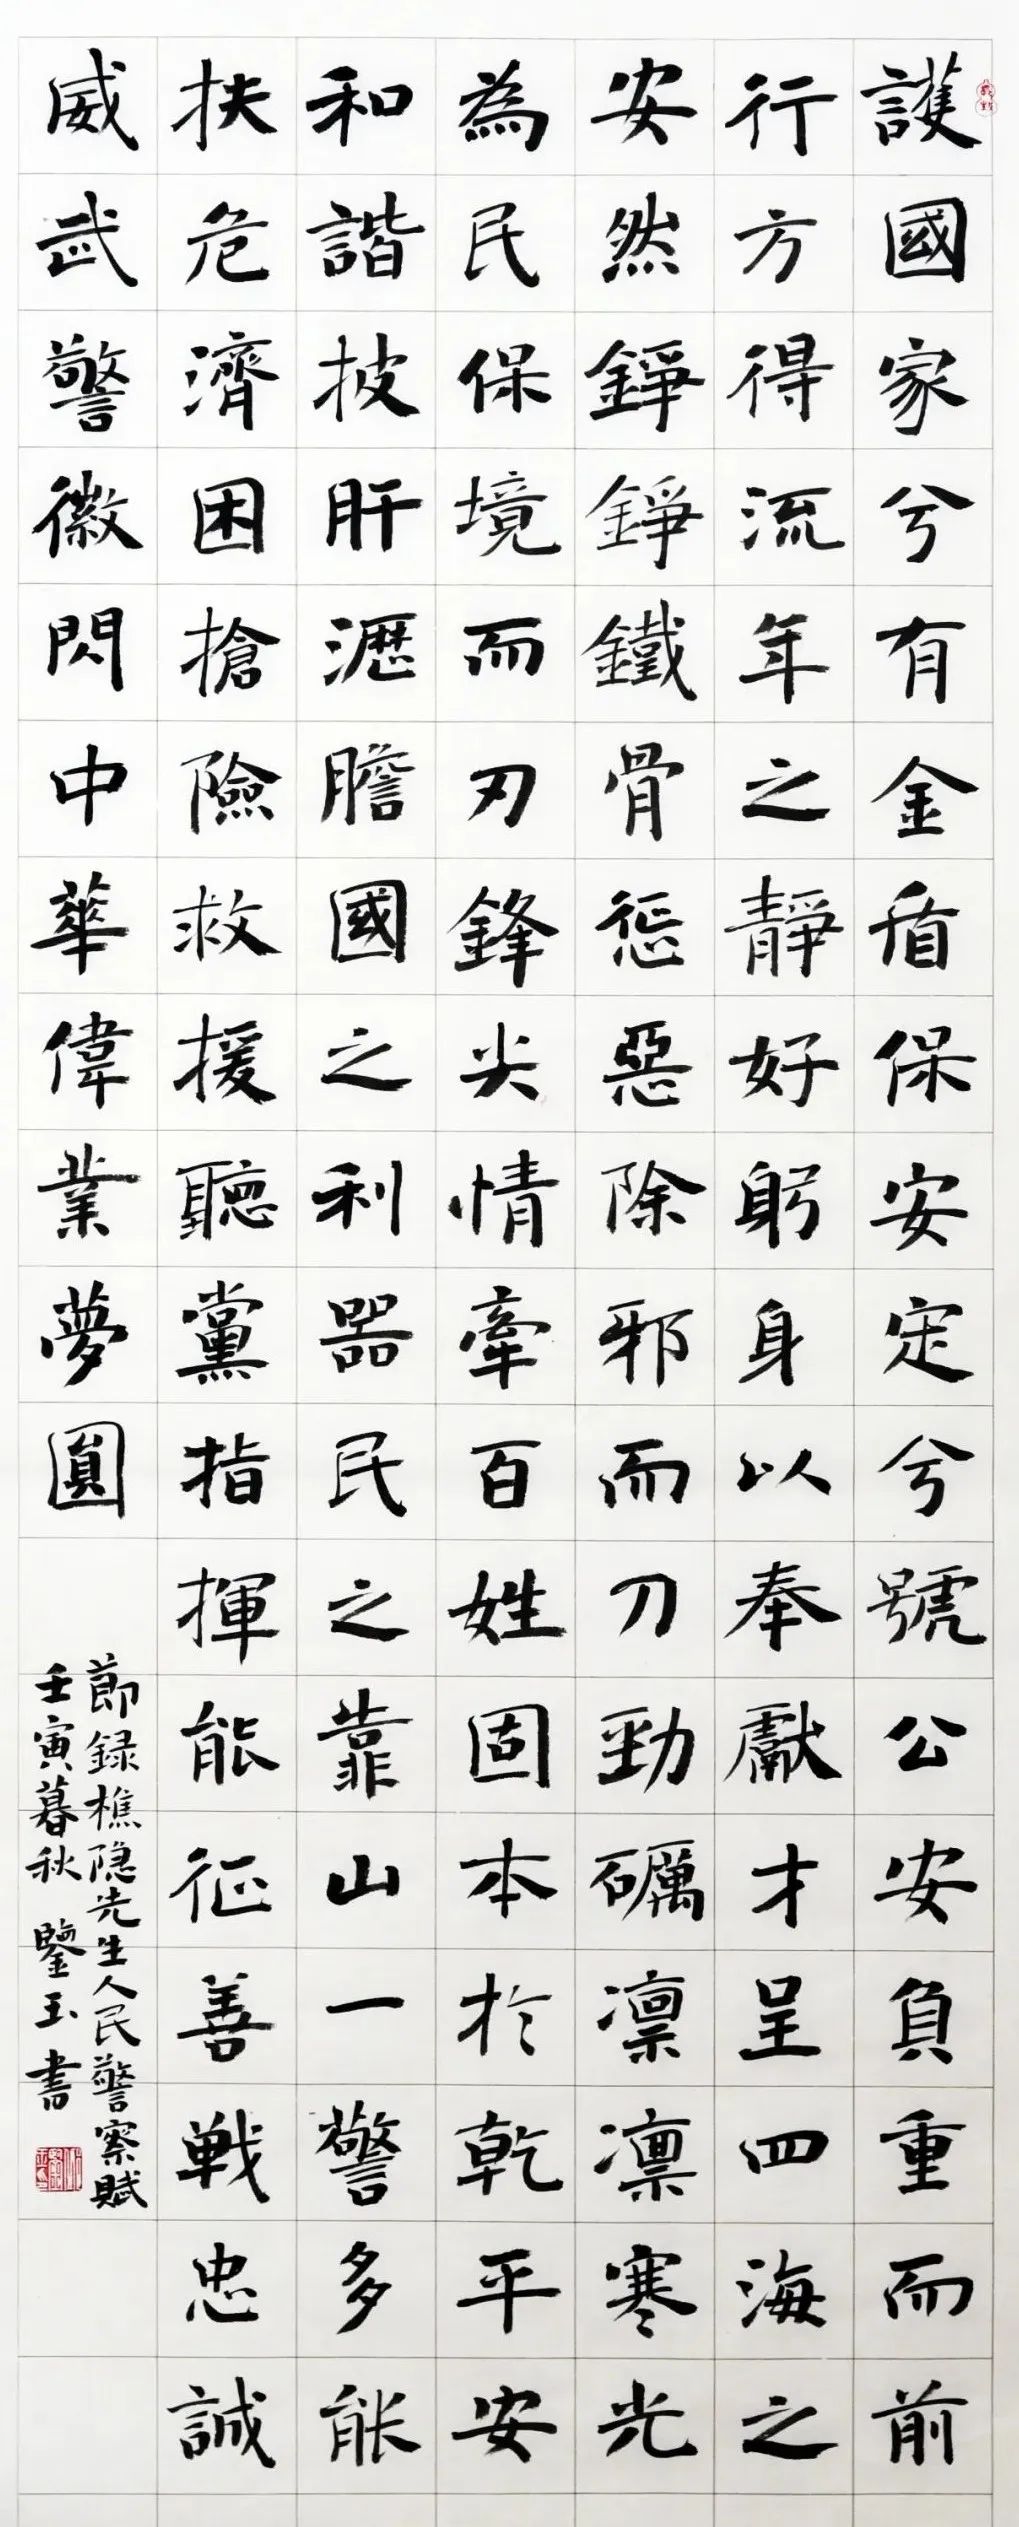 護國家兮有金盾保安定兮號公安負重而前
行方得流年之靜好躬身以奉獻才呈四海之
安然錚錚鐵骨懲惡除邪而刀勁礪凛凛寒光
為民保境而刃鋒尖情牽百姓固本於乾平安
和諧披肝瀝膽國之利器民之靠山一警多能
扶危濟困搶險救援聽黨指揮能征善戰忠誠
威武警徽閃中華偉業夢圓
節録樵隐先生人民警察賦
壬寅暮秋 鑒玉書